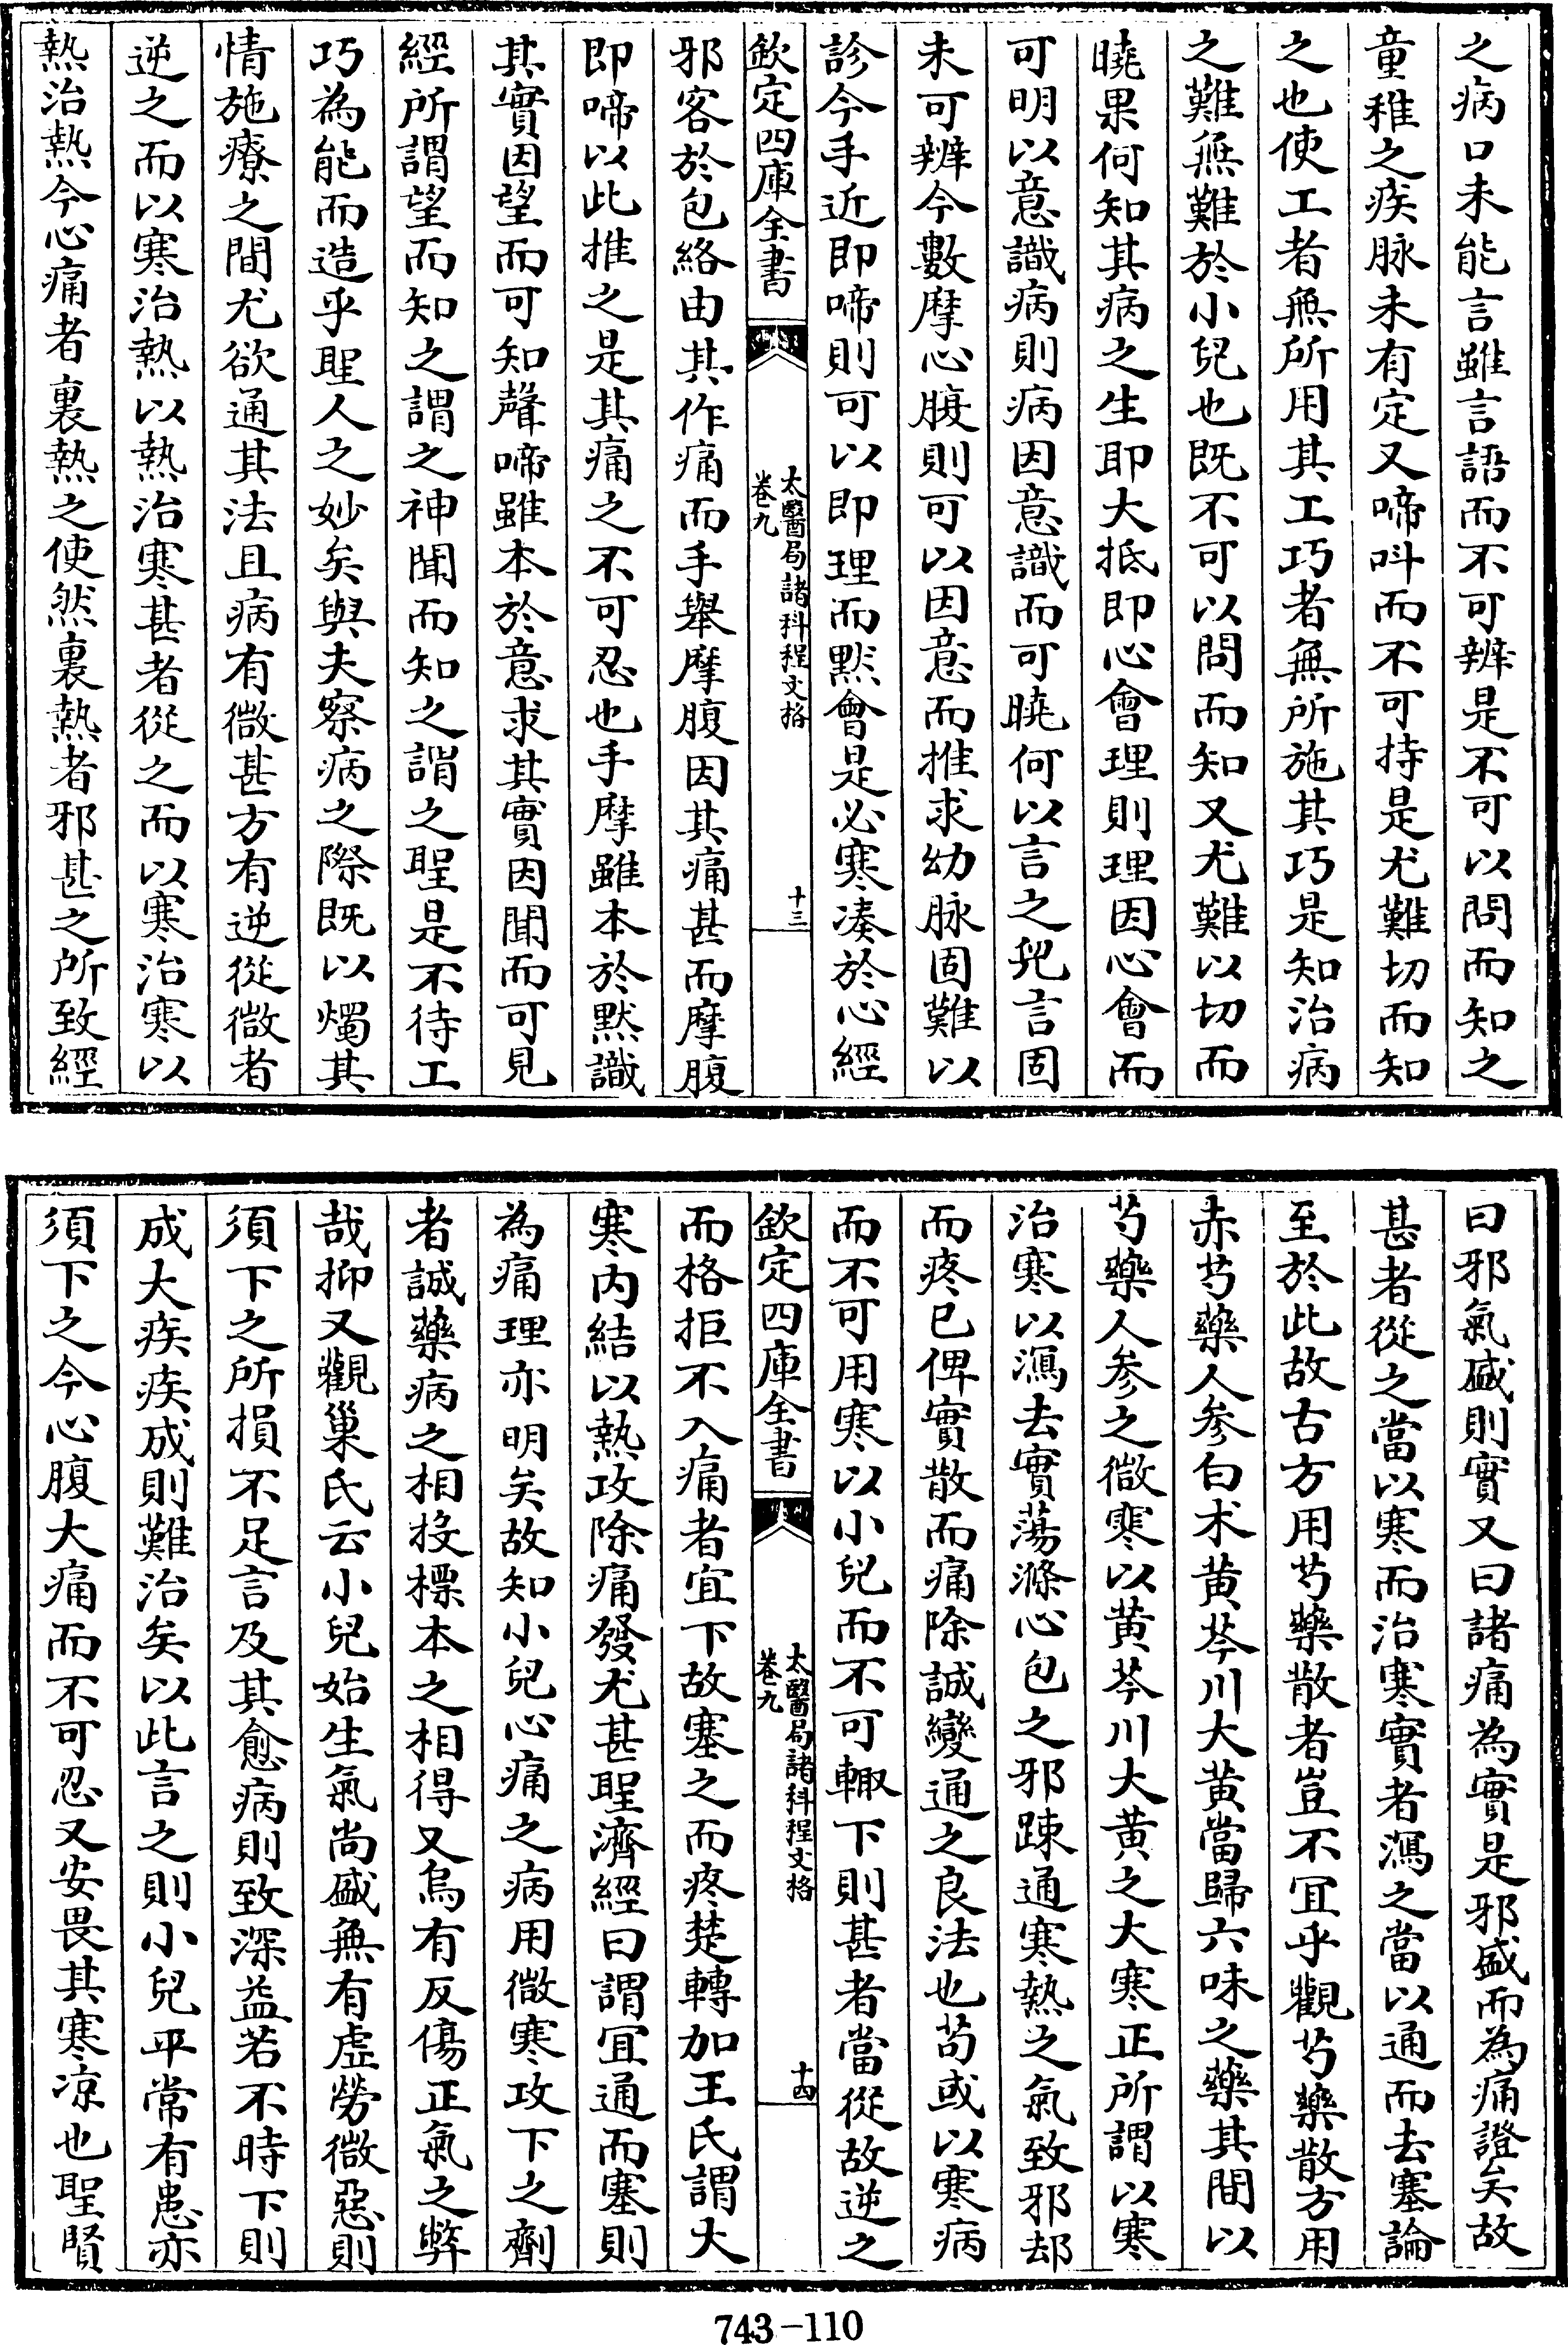 之病口未能言雖言語而不可辨是不可以問而知之
童稚之疾脉未有定又啼呌而不可持是尤難切而知
之也使工者無所用其工巧者無所施其巧是知治病
之難無難於小兒也既不可以問而知又尤難以切而
曉果何知其病之生耶大抵即心會理則理因心會而
可明以意識病則病因意識而可曉何以言之兒言固
未可辨今數摩心腹則可以因意而推求幼脉固難以
診今手近即啼則可以即理而默會是必寒湊於心經
欽定四庫全書
太醫局諸科程文格
卷九
十三
邪客於包絡由其作痛而手舉摩腹因其痛甚而摩腹
即啼以此推之是其痛之不可忍也手摩雖本於默識
其實因望而可知聲啼雖本於意求其實因聞而可見
經所謂望而知之謂之神聞而知之謂之聖是不待工
巧為能而造乎聖人之妙矣與夫察病之際既以燭其
情施療之間尤欲通其法且病有微甚方有逆從微者
逆之而以寒治熱以熱治寒甚者從之而以寒治寒以
熱治熱今心痛者裏熱之使然裏熱者邪甚之所致經
曰邪氣盛則實又曰諸痛為實是邪盛而為痛證矣故
甚者從之當以寒而治寒實者瀉之當以通而去塞論
至於此故古方用芍藥散者豈不宜乎觀芍藥散方用
赤芍藥人參白术黄芩川大黄當歸六味之藥其間以
芍藥人參之微寒以黄芩川大黄之大寒正所謂以寒
治寒以瀉去實蕩滌心包之邪踈通寒熱之氣致邪却
而疼已俾實散而痛除誠變通之良法也苟或以寒病
而不可用寒以小兒而不可輙下則甚者當從故逆之
欽定四庫全書
太醫局諸科程文格
卷九
十四
而格拒不入痛者宜下故塞之而疼楚轉加王氏謂大
寒内結以熱攻除痛發尤甚聖濟經曰謂宜通而塞則
為痛理亦明矣故知小兒心痛之病用微寒攻下之劑
者誠藥病之相投標本之相得又烏有反傷正氣之弊
哉抑又觀巢氏云小兒始生氣尚盛無有虛勞微惡則
須下之所損不足言及其愈病則致深益若不時下則
成大疾疾成則難治矣以此言之則小兒平常有患亦
須下之今心腹大痛而不可忍又安畏其寒凉也聖賢
743-110